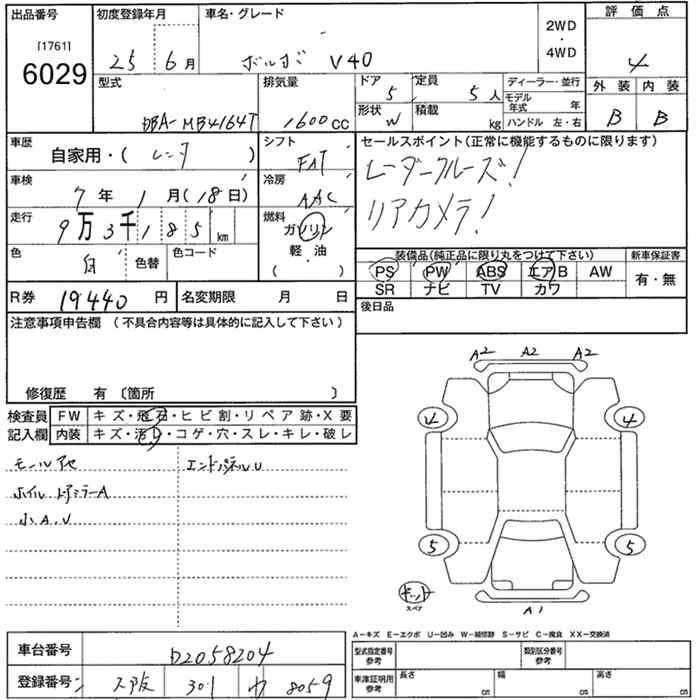 出品番号 初度登録年月 車名・グレード 2WD・4WD 評価点
[1761] 6029 25 6月 ボルボ V40 4
型式 排気量 ドア 定員 ディーラー・並行 外装 内装
DBA-MB4164T 1600cc 5 5人 モデル年式 年 B B
形状 W 積載 kg ハンドル 左・右
車歴 自家用・( レンタ ) シフト FAT セールスポイント(正常に機能するものに限ります)
車検 7年 1月(18日) 冷房 AAC レーダークルーズ!
走行 9万3千185km 燃料 ガソリン 軽・油 ( ) リアカメラ!
色 白 色替 色コード 装備品(純正品に限り丸をつけて下さい) 新車保証書
PS PW ABS エアB AW 有・無
SR ナビ TV カワ
R券 19440円 名変期限 月 日 後日品
注意事項申告欄 (不具合内容等は具体的に記入して下さい)
修復歴 有 〔箇所 〕
A2 A2 A2
検査員 FW キズ・飛石・ヒビ割・リペア跡・X要
記入欄 内装 キズ・汚レ・コゲ・穴・スレ・キレ・破レ
4 4
モールアセ エンドパネルU
ホイル ドアミラーA
小A.U
5 5
キット
スペア
A1
A−キズ E−エクボ U−凹み W−補修跡 S−サビ C−腐食 XX−交換済
車台番号 D2058204 型式指定番号 参考 類別区分番号 参考
登録番号 大阪 301 カ 8059 車庫証明用 参考 長さ cm 幅 cm 高さ cm